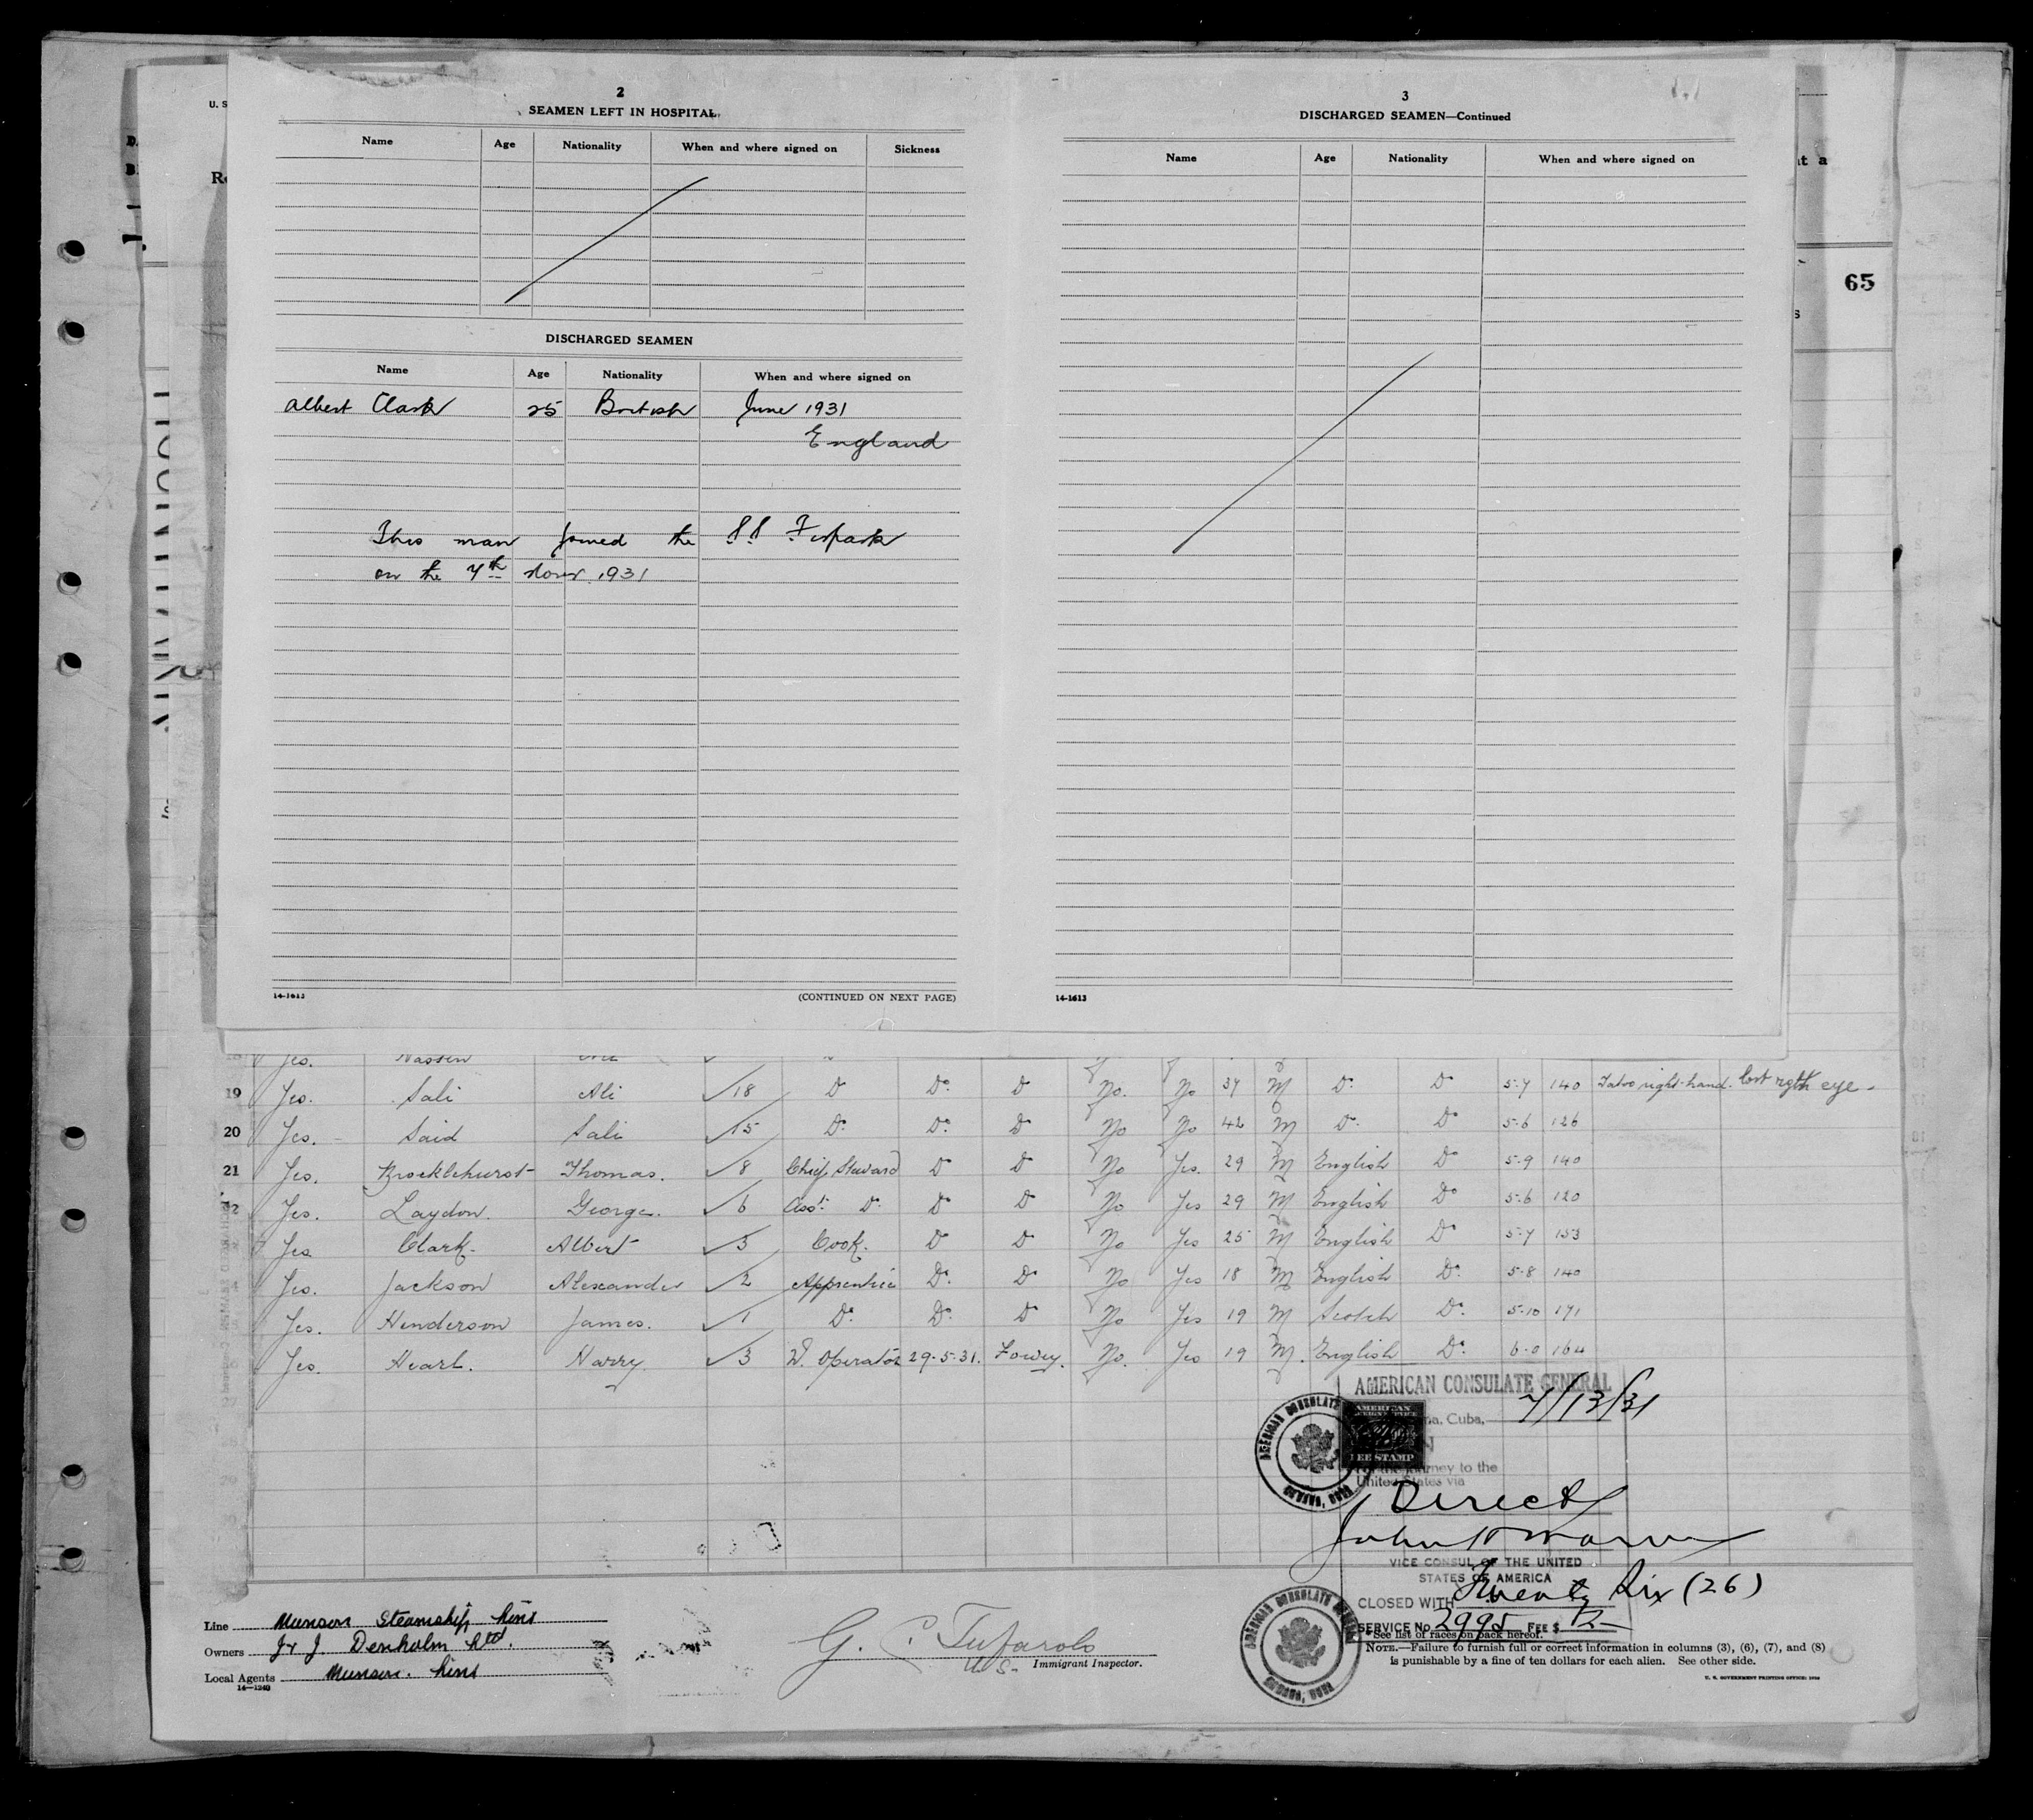 2
SEAMEN LEFT IN HOSPITAL
Name Age Nationality When and where signed on Sickness
DISCHARGED SEAMEN
Name Age Nationality When and where signed on
Albert Clark 25 British June 1931
England
This man joined the SS
on the 7th Novr 1931
14-1613
(CONTINUED ON NEXT PAGE)
3
DISCHARGED SEAMEN—Continued
Name Age Nationality When and where signed on
14-1613
U. S
65
Yes. Nassen
19 Yes. Sali Ali 18 Do Do. Do No. No 37 M Do. Do 5-7 140 Tatoo right hand. lost right eye.
20 Yes. Said Sali 15 Do. Do. Do No No 42 M Do. Do 5-6 126
21 Yes. Brocklehurst Thomas. 8 Chief Steward Do Do No Yes. 29 M English Do 5-9 140
Yes. Laydon. George. 6 Asst. Do. Do Do No Yes 29 M English Do 5-6 120
Yes Clark. Albert 3 Cook. Do Do No Yes 25 M English Do 5-7 153
Yes. Jackson Alexander 2 Apprentice Do. Do No Yes 18 M English Do. 5-8 140
Yes. Henderson James. 1 Do. Do. Do No Yes 19 M Scotch Do. 5-10 171
Yes. Hearl. Harry 3 W. Operator 29-5-31. Fowey. No. Yes 19 M. English Do. 6-0 164
AMERICAN CONSULATE GENERAL
Cuba, 7/13/31
AMERICAN
FEE STAMP
journey to the
United States via
Direct
VICE CONSUL OF THE UNITED
STATES OF AMERICA
CLOSED WITH Twenty Six (26)
SERVICE No 2995 FEE $
Line Munson Steamship Line
Owners J & J Denholm Ltd.
Local Agents Munson. Line
14-1240
G. C. Tufarolo
U.S. Immigrant Inspector.
*See list of races on back hereof.
NOTE.—Failure to furnish full or correct information in columns (3), (6), (7), and (8)
is punishable by a fine of ten dollars for each alien. See other side.
U. S. GOVERNMENT PRINTING OFFICE: